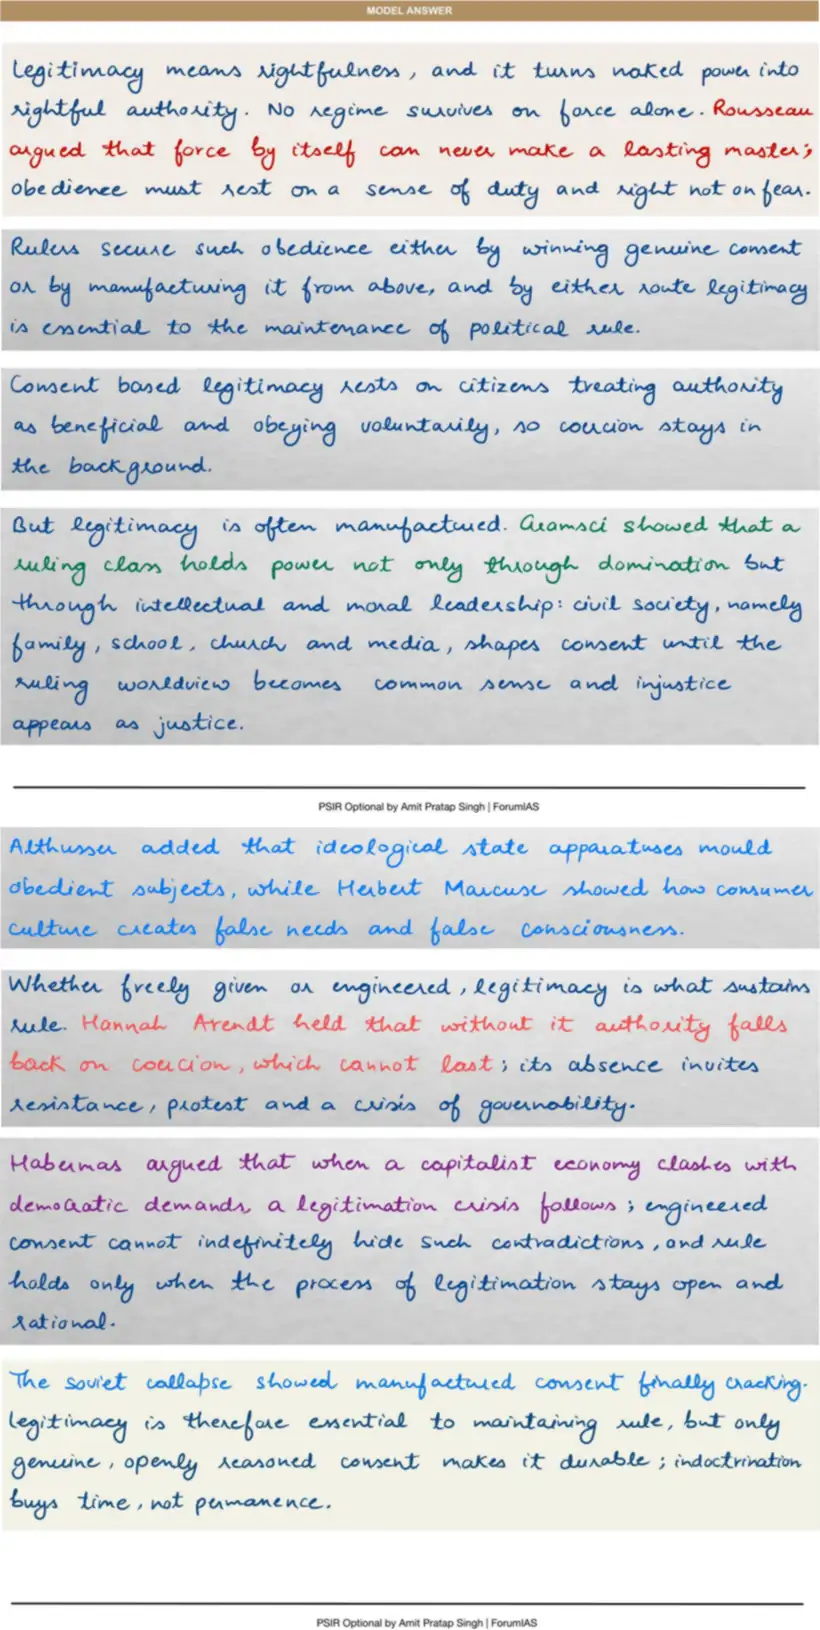 MODEL ANSWER
Legitimacy means rightfulness, and it turns naked power into
rightful authority. No regime survives on force alone. Rousseau
argued that force by itself can never make a lasting master;
obedience must rest on a sense of duty and right not on fear.
Rulers secure such obedience either by winning genuine consent
or by manufacturing it from above, and by either route legitimacy
is essential to the maintenance of political rule.
Consent based legitimacy rests on citizens treating authority
as beneficial and obeying voluntarily, so coercion stays in
the background.
But legitimacy is often manufactured. Gramsci showed that a
ruling class holds power not only through domination but
through intellectual and moral leadership: civil society, namely
family, school, church and media, shapes consent until the
ruling worldview becomes common sense and injustice
appears as justice.
PSIR Optional by Amit Pratap Singh | ForumIAS
Althusser added that ideological state apparatuses mould
obedient subjects, while Herbert Marcuse showed how consumer
culture creates false needs and false consciousness.
Whether freely given or engineered, legitimacy is what sustains
rule. Hannah Arendt held that without it authority falls
back on coercion, which cannot last; its absence invites
resistance, protest and a crisis of governability.
Habermas argued that when a capitalist economy clashes with
democratic demands, a legitimation crisis follows; engineered
consent cannot indefinitely hide such contradictions, and rule
holds only when the process of legitimation stays open and
rational.
The soviet collapse showed manufactured consent finally cracking.
Legitimacy is therefore essential to maintaining rule, but only
genuine, openly reasoned consent makes it durable; indoctrination
buys time, not permanence.
PSIR Optional by Amit Pratap Singh | ForumIAS